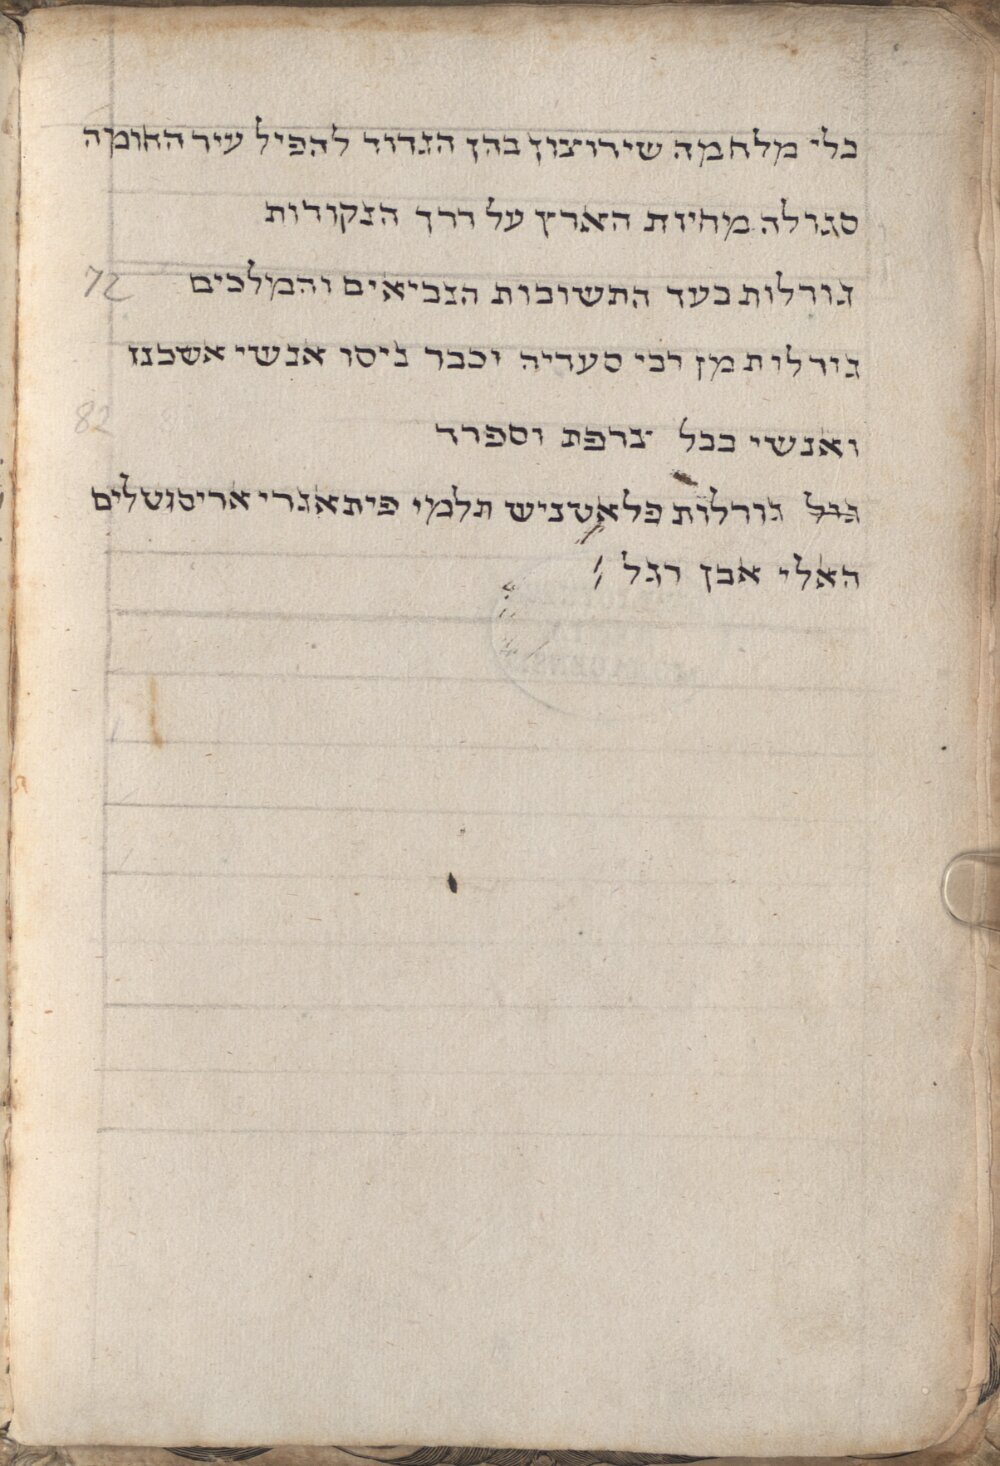 כלי מלחמה שירוצון בהן הגדוד להפיל עיר החומה
סגולה מחיות הארץ על דרך הנקודות
גורלות בעד התשובות הנביאים והמלכים
72
גורלות מן רבי סעדיה וכבר ניסו אנשי אשכנז
ואנשי בבל צרפת וספרד
82
גורל גורלות פלאטניש תלמי פיתאגרי אריסטטלים
האלי אבן רגל